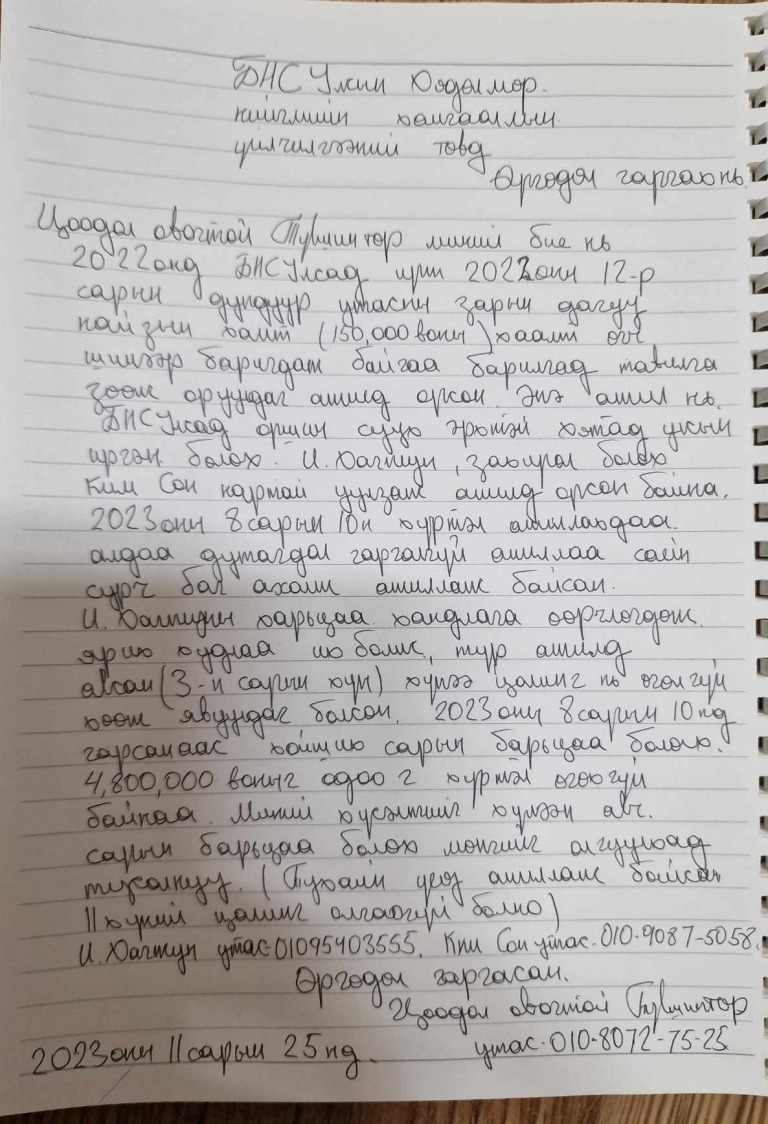 БНСУлсын Хөдөлмөр
нийгмийн хамгааллын
үйлчилгээний төвд
Өргөдөл гаргах нь.
Цоодол овогтой Түвшинтөр миний бие нь
2022онд БНСУлсад ирж 2022оны 12-р
сарын дундуур утасны зарын дагуу
найзын хамт (150,000 воны) хаалт өгч
шинээр баригдаж байгаа барилгад тавилга
зөөж оруулдаг ажилд орсон. Энэ ажил нь.
БНСУлсад оршин суух эрхтэй хятад улсын
иргэн болох. И. , захирал болох
Ким Сон нартай уулзаж ажилд орсон байна.
2023оны 8сарын 10н хүртэл ажиллахдаа.
алдаа дутагдал гаргалгүй ажиллаа сайн
сурч баг ахалж ажиллаж байсан.
И. харьцаа хандлага өөрчлөгдөж.
ярих худлаа их болж, түр ажилд
авсан (3-н сарын хүн) хүнээ цалинг нь өгөлгүй
хөөж явуулдаг болсон. 2023оны 8сарын 10нд
гарсанаас хойших сарын барьцаа болох.
4,800,000 воныг одоо г хүртэл өгөхгүй
байнаа. Миний хүсэлтийг хүлээн авч.
сарын барьцаа болох мөнгийг олгуулхад
тусалнуу. (Тухайн үед ажиллаж байсан
11хүний цалинг олгоогүй болно)
И. утас-01095403555. Ким Сон утас-010-9087-5058.
Өргөдөл гаргасан.
Цоодол овогтой Түвшинтөр
2023оны 11сарын 25нд. утас-010-8072-75-25